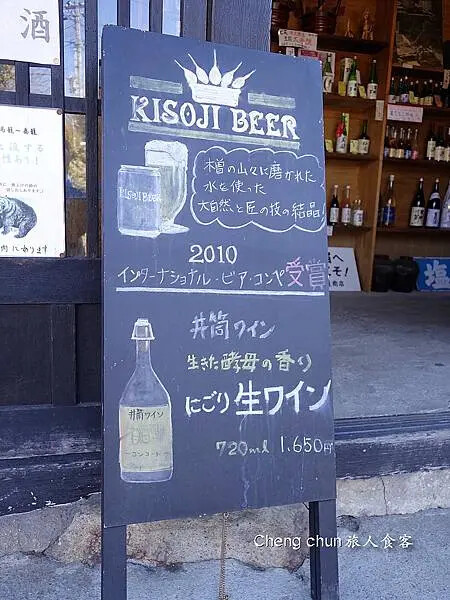 酒
KISOJI BEER
KISOJI
BEER
木曽の山々に磨かれた
水を使った
大自然と匠の技の結晶
2010
インターナショナル・ビア・コンペ受賞
井筒ワイン
生きた酵母の香り
にごり生ワイン
720ml 1.650円
井筒ワイン
コンコード
Cheng chun旅人食客